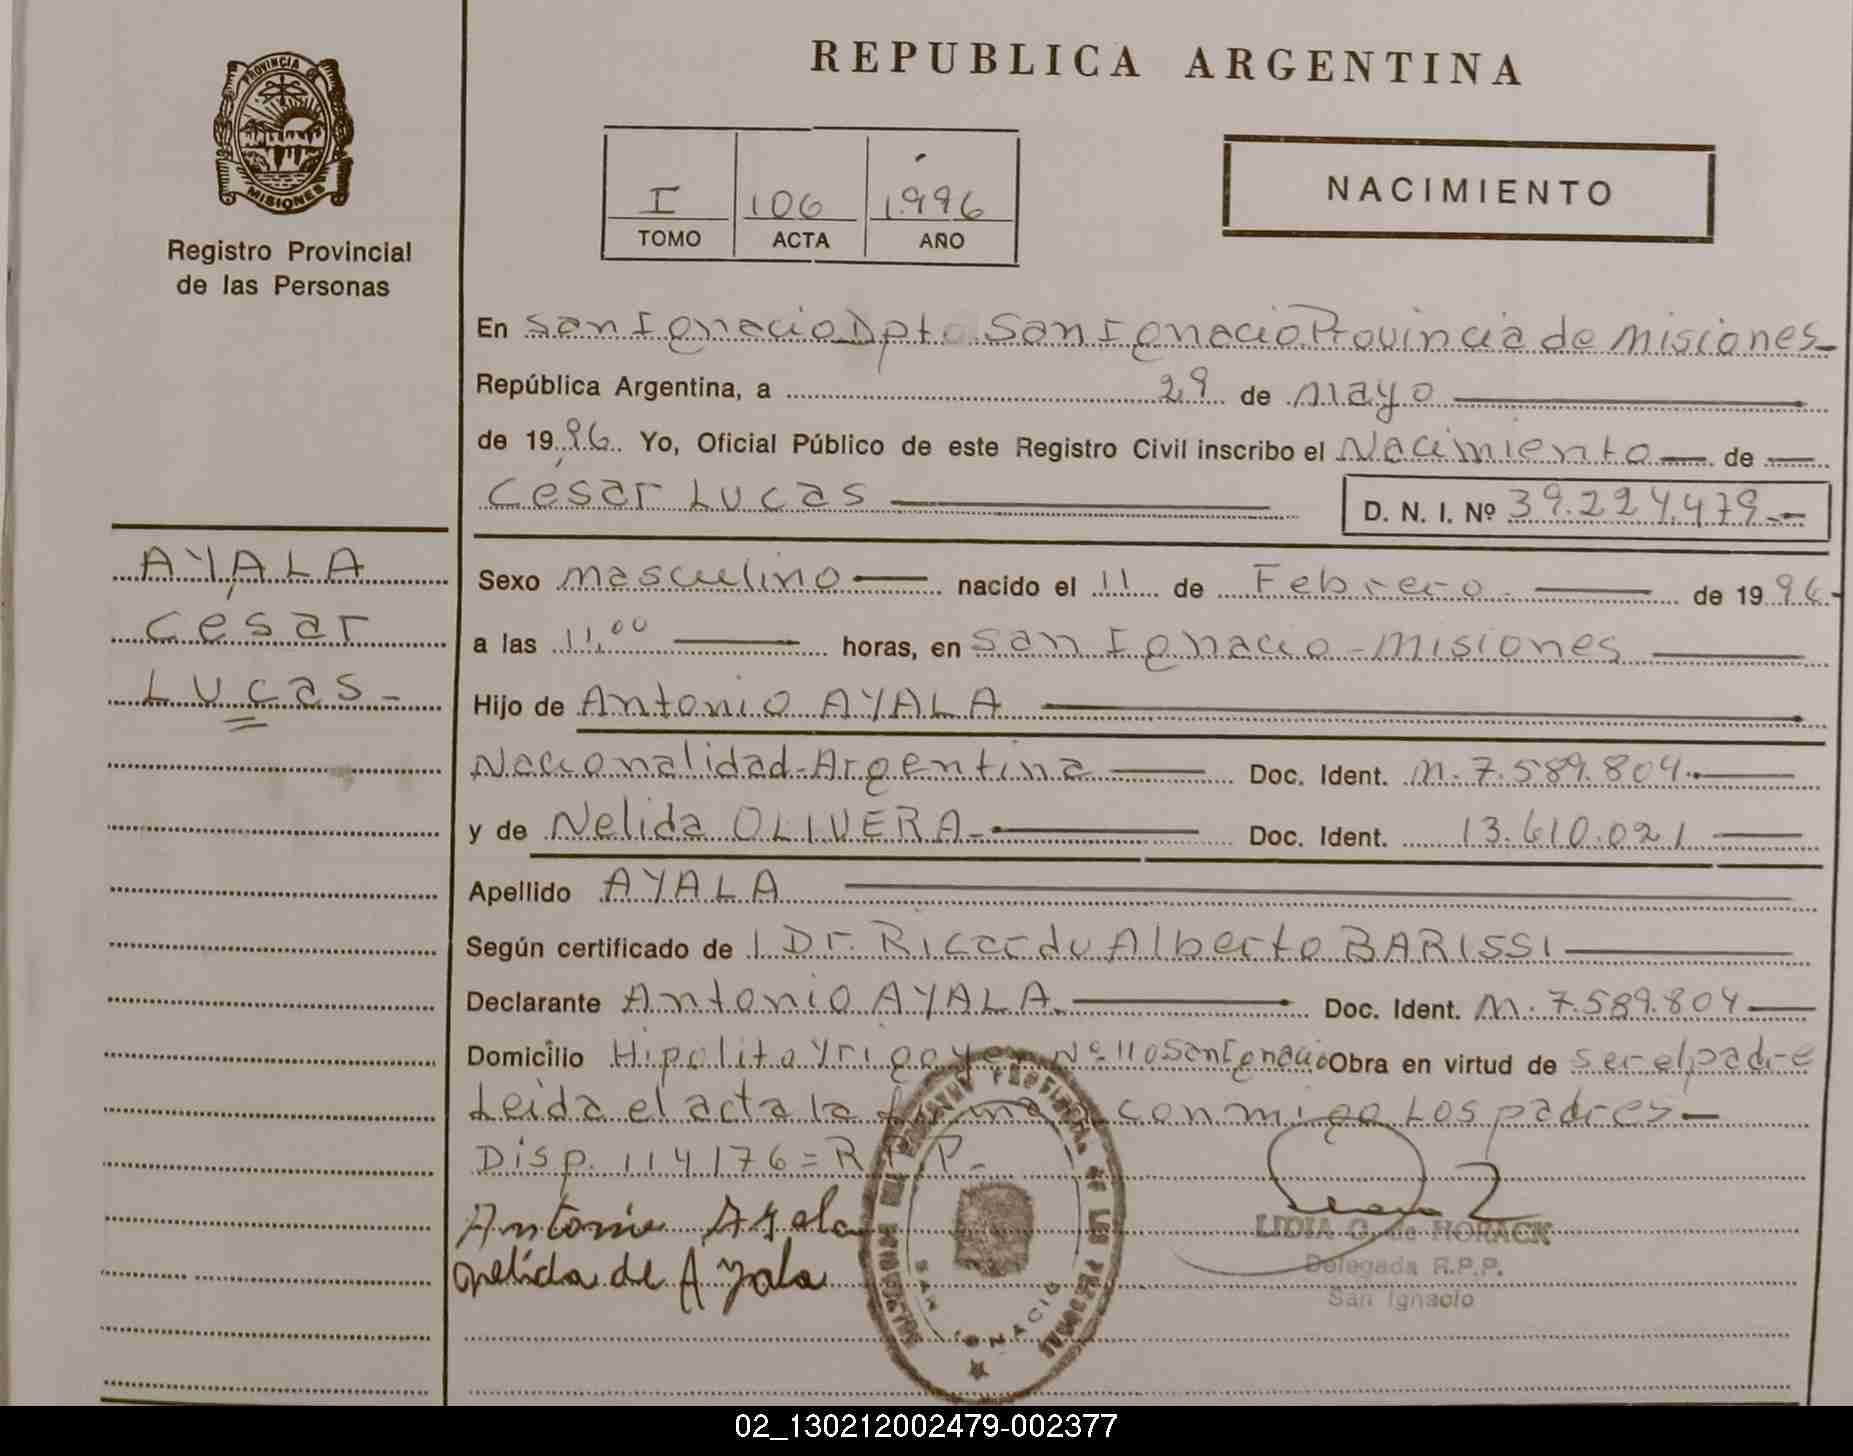 REPUBLICA ARGENTINA
PROVINCIA DE
MISIONES
Registro Provincial
de las Personas
I 106 1996
TOMO ACTA AÑO
NACIMIENTO
En San Ignacio Dpto. San Ignacio Provincia de Misiones
República Argentina, a 29 de mayo
de 1996. Yo, Oficial Público de este Registro Civil inscribo el Nacimiento de
César Lucas
D. N. I. Nº 39.224.479.-
AYALA
César
Lucas-
Sexo masculino nacido el 11 de Febrero de 1996-
a las 11.00 horas, en San Ignacio - Misiones
Hijo de Antonio AYALA
Nacionalidad-Argentina Doc. Ident. M. 7.589.804.
y de Nelida OLIVERA- Doc. Ident. 13.610.021
Apellido AYALA
Según certificado de l Dr. Ricardo Alberto BARISSI
Declarante Antonio AYALA. Doc. Ident. M. 7.589.804
Domicilio Hipolito Yrigoyen Nº 110 San Ignacio Obra en virtud de ser el padre
Leida el acta la conmigo Los padres-
Disp. 114/76=R. P.-
Antonio Ayala
Nelida de Ayala
LIDIA G. de HORACK
Delegada R.P.P.
San Ignacio
PROVINCIAL DE LAS PERSONAS
SAN IGNACIO
02_130212002479-002377